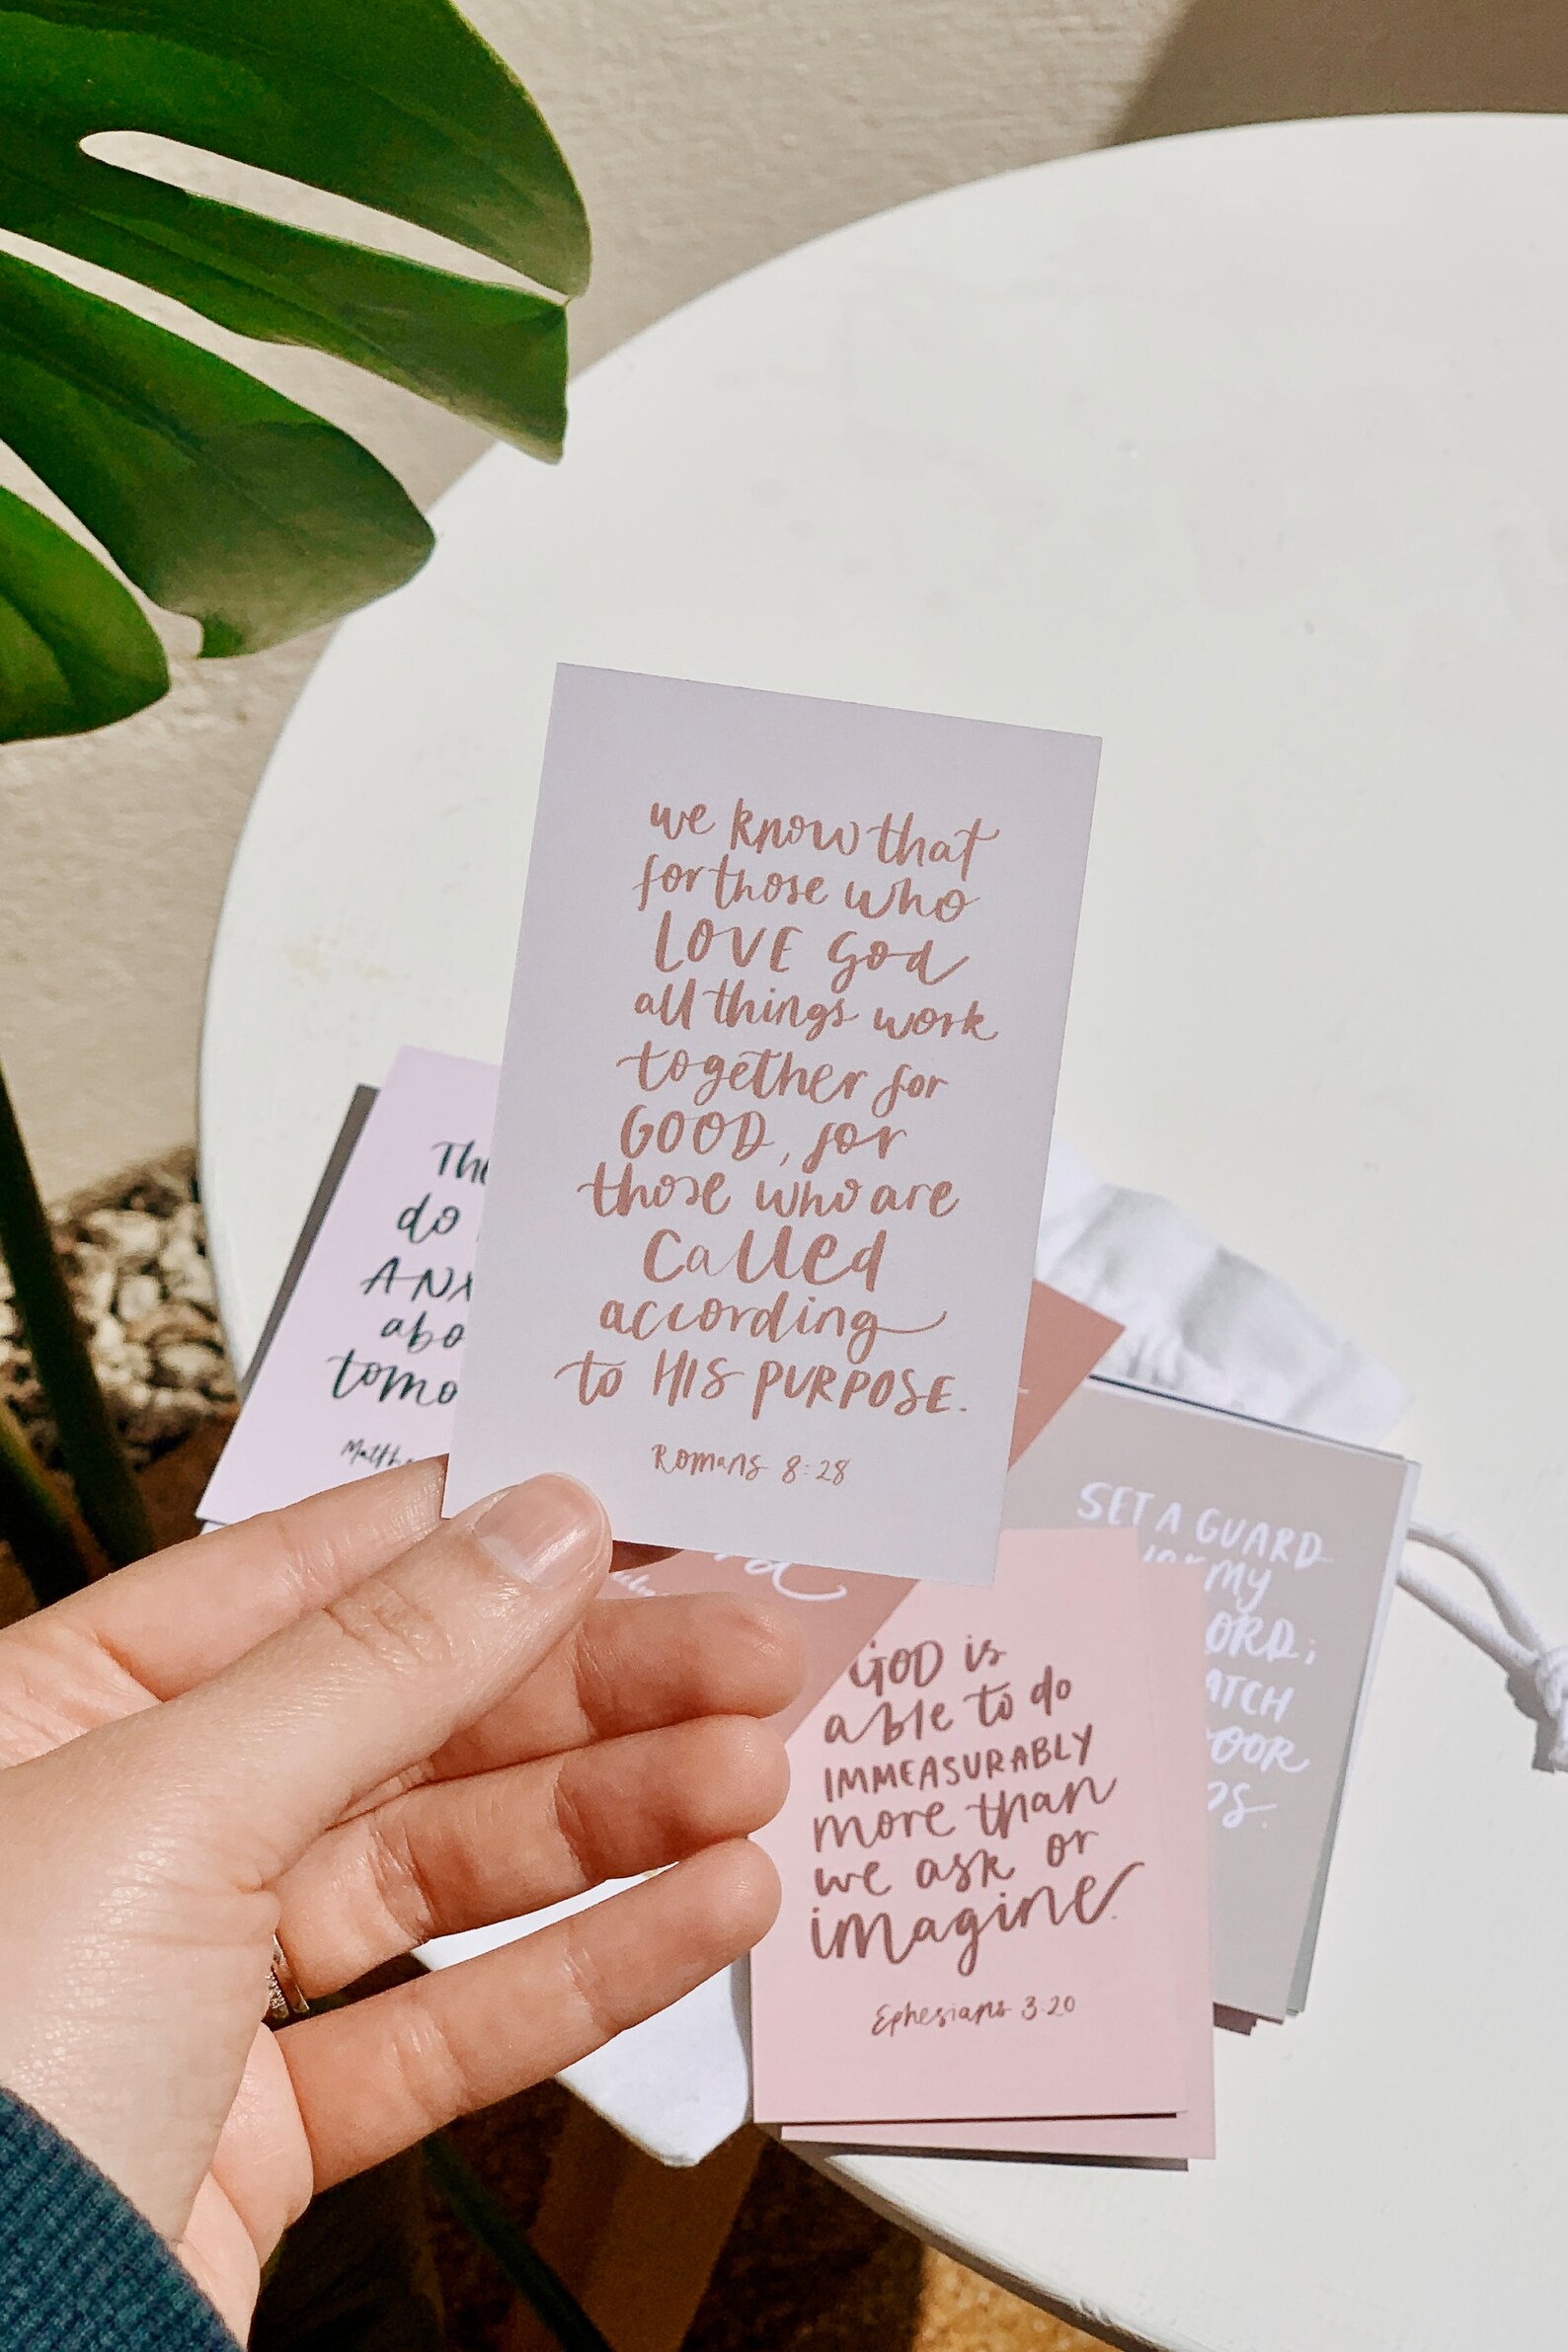 we know that
for those who
LOVE God
all things work
together for
GOOD, for
those who are
called
according
to HIS PURPOSE.
Romans 8:28
do
tomo
SET A GUARD
MY
GOD is
able to do
IMMEASURABLY
more than
we ask or
imagine.
Ephesians 3:20